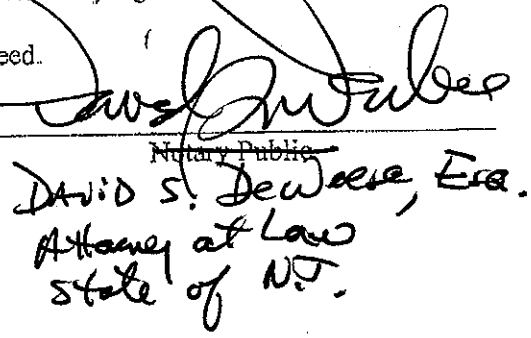 eed.
Notary Public
DAViD S. DeWeese, Esq.
Attorney at Law
State of N.J.